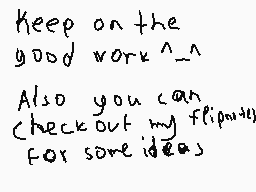 Keep on the
good work ^_^
Also you can
check out my flipnotes
for some ideas